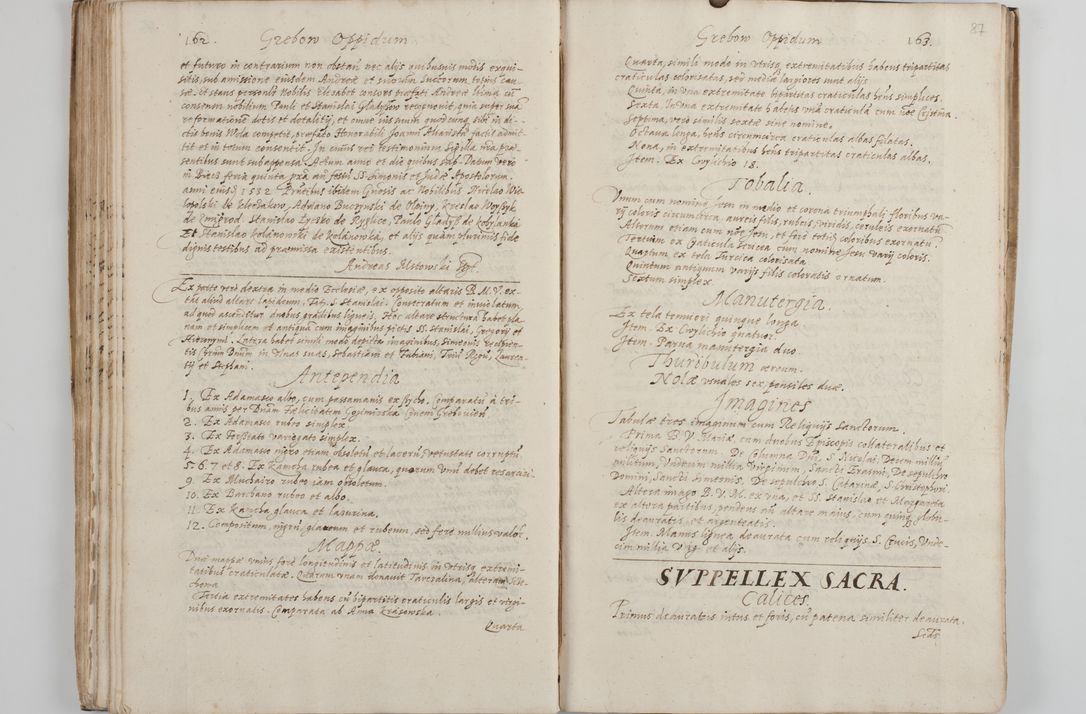 162. Grebow Oppidum
et futuro in contrarium non obstan: nec alijs quibusuis modis exqui-
sitis, sub amissione eiusdem Andreæ et suorum
sæ. Et stans personal: Nobilis Elizabet consors præfati Andreæ
consensu nobilium Pauli et Stanislai recognouit, quia super sua
reformatione dotis et dotalitij, et omne ius suum quodcunq; sibi in di-
ctis bonis Wola competit, præfato Honorabili Joanni Altaristæ factis admit-
tit et in totum consentit. In cuius rei testimonium Sigilla nra præ-
sentibus sunt subappensa. Actum anno et die quibus sup: Datum vero
in Biecz feria quinta prx: an festu SS. Simonis et Judæ Apostolorum.
anni eiusd: 1532 Pntibus ibidem Gnosis ac Nobilibus Nicolao Wie-
lopolski de
de Stanislao de Paulo
Et Stanislao Kolanowski de Kolanowka, et alijs quàm plurimis fide
dignis testibus ad præmissa existentibus.
Andreas
Ex parte verò dextra in medio Ecclesiæ, ex opposito altaris B. M. V. ex-
tat aliud altare lapideum, Tit. S. Stanislai. Consecratum et inuiolatum,
ad quod ascenditur duobus gradibus ligneis. Hoc altare structura habet pla-
nam et simplicem et antiquà cum imaginibus pictis SS. Stanislai, Gregorij et
Hieronymi. Latera habet simili modo depicta imaginibus, Simeonis recipien-
tis Chrum Dnum in vlnas suas, Sebastiani et Fabiani, Lauren-
tij et Stephani.
Antependia
1. Ex Adamasco albo, cum passamanis ex Comparatū à tri-
bus annis per Dnam Fælicitatem
2. Ex Adamasco rubro simplex.
3. Ex variegato simplex.
4. Ex Adamasco nigro etiam obsoletū et lacerū, vetustate corruptū
5. 6. 7 et 8. Ex Kamcha rubea et glauca, quorum vnū debet resarciri.
9. Ex Muchairo rubro iam obsoletum.
10. Ex Barchano rubro et albo.
11. Ex Kamcha glauca et lazurina.
12. Compositum, nigrū, glaucum et rubeum, sed ferè nullius valor.
Mappæ.
Duæ mappæ vnius ferè longitudinis et latitudinis in vtrisq; extremi-
tatibus craticulatæ. Quarum vnam donauit alteram
Tertia extremitates habens cū bipartitis craticulis largis et virgi-
nibus exornatis. Comparata ab Anna
Quarta
Grebow Oppidum 163.
87
Quarta, simili modo in vtrisq; extremitatibus habens tripartitas
craticulas colorisatas, sed mediæ largiores sunt alijs.
Quinta, in vna extremitate bipartitas craticulas hēns simplices.
Sexta, In vna extremitate habens vnā craticulā cum noīe
Septima, verò similis sextæ sine nomine.
Octaua longa, hēns circumcirca craticulas albas filatas.
Nona, in extremitatibus hēns tripartitas craticulas albas.
Item. Ex Cwylichio 18.
Tobalia.
Vnum cum nomine Jesu in medio et corona triumphali floribus va-
rij coloris circumdata, aureis filis, rubeis, viridis, ceruleis exornatū
Alterum etiam cum nōie Jesu, et ferè totidē coloribus exornatū.
Tertium ex Craticula cum nomine Jesu varij coloris.
Quartum ex tela Turcica colorisata
Quintum antiquum varijs filis coloratis ornatum.
Sextum simplex.
Manutergia.
Ex tela tenuiori quinque longa.
Item. Ex Cwylichio quatuor.
Item. Parua manutergia duo.
Thuribulum æreum.
Nolæ vsuales sex, pensiles duæ.
Imagines
Tabulæ tres imaginum cum Reliquijs Sanctorum.
Prima B. V. Mariæ, cum duobus Episcopis collateralibus et
reliquijs Sanctorum. De Columna Dni, S. Nicolai, Decem milliū
militum, Vndecim millia Virginum, Sancti Erasmi, De sepulchro
Domini, Sancti Simeonis, De sepulchro S. Catarinæ, S. Christophori.
Altera imago B. V. M. ex vna, et SS. Stanislao et Margareta
ex altera partibus, pendens an altare maius, cum quinq;
lis deauratis, et argenteatis.
Item. Manus lignea deaurata cum reliquijs S. Crucis, Vnde-
cim millia Virg: et alijs.
SVPPELLEX SACRA.
Calices.
Primus deauratus intus et foris, cū patena similiter deaurata.
Secdus